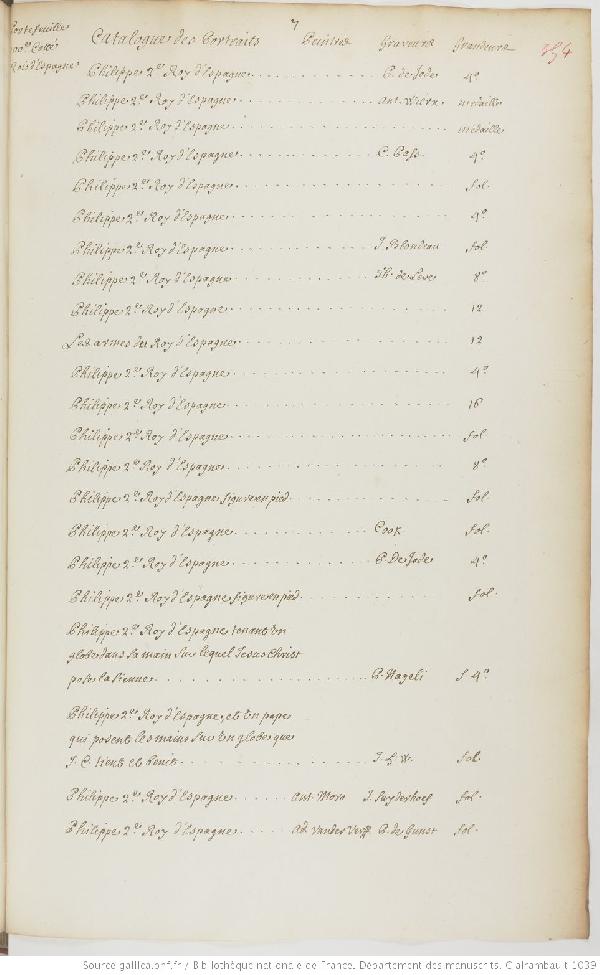 7
Portefeuille
Rois d'Espagne
Catalogue des Portraits Peintres Graveurs Grandeurs 254
Philippe 2e. Roy d'Espagne P. de Jode 4o.
Philippe 2e. Roy d'Espagne Ant. Wierx medaille
Philippe 2e. Roy d'Espagne medaille
Philippe 2e. Roy d'Espagne C. Pass 4o.
Philippe 2e. Roy d'Espagne fol.
Philippe 2e. Roy d'Espagne 4o.
Philippe 2e. Roy d'Espagne J. Blondeau fol.
Philippe 2e. Roy d'Espagne Th. de Leve 8o.
Philippe 2e. Roy d'Espagne 12
Les armes du Roy d'Espagne 12
Philippe 2e. Roy d'Espagne 4o.
Philippe 2e. Roy d'Espagne 16
Philippe 2e. Roy d'Espagne fol
Philippe 2e. Roy d'Espagne 8o.
Philippe 2e. Roy d'Espagne figure en pied fol.
Philippe 2e. Roy d'Espagne Cook fol.
Philippe 2e. Roy d'Espagne P. De Jode 4o.
Philippe 2e. Roy d'Espagne figure en pied fol.
Philippe 2e. Roy d'Espagne tenant un
globe dans sa main sur lequel Jesus Christ
pose la sienne P. Nageli f 4o.
Philippe 2e. Roy d'Espagne, et un pape
qui posent les mains sur un globe que
J. C. tient et benit fol.
Philippe 2e. Roy d'Espagne Ant. Moro J. Suyderhoef fol.
Philippe 2e. Roy d'Espagne Ad. Vander Werff P. de Gunst fol.
Source gallica.bnf.fr / Bibliothèque nationale de France. Département des manuscrits. Clairambault 1039